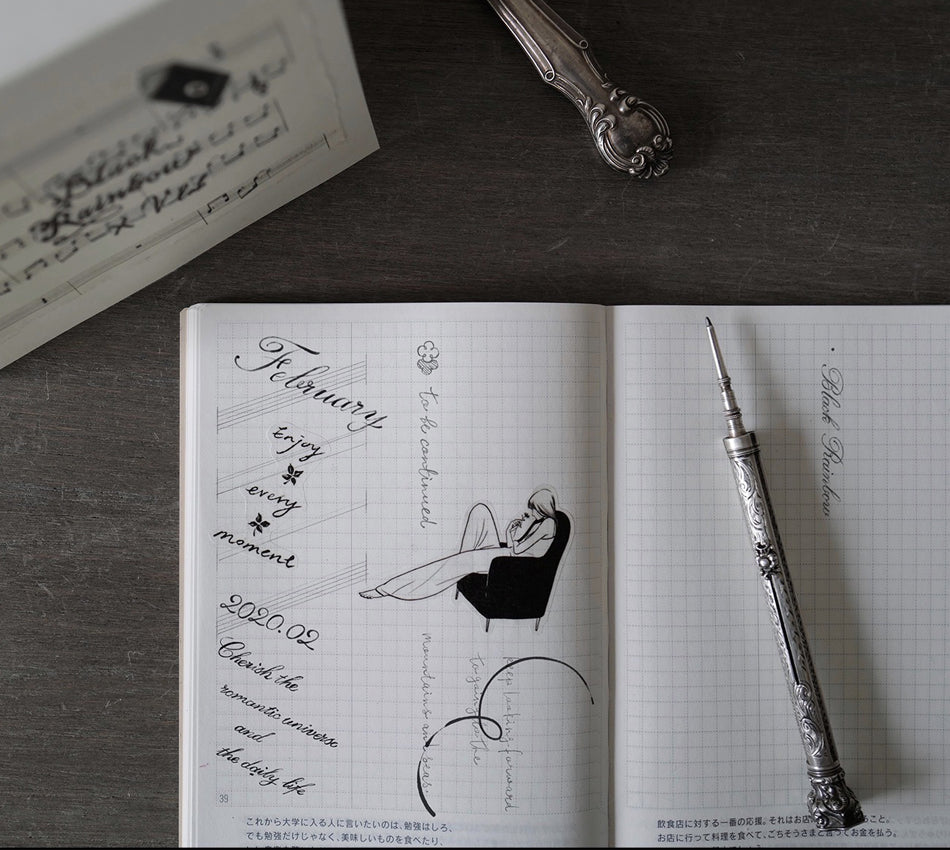 Black
Rainbow
x Vis
February
Enjoy
every
moment
2020.02
Cherish the
romantic universe
and
the daily life
to be continued
mountains and seas
keep looking forward
to going to the
Black Rainbow
39
これから大学に入る人に言いたいのは、勉強はしろ、
でも勉強だけじゃなく、美味しいものを食べたり、
飲食店に対する一番の応援。それはお店に
こと。
お店に行って料理を食べて、ごちそうさまと言ってお金を払う。